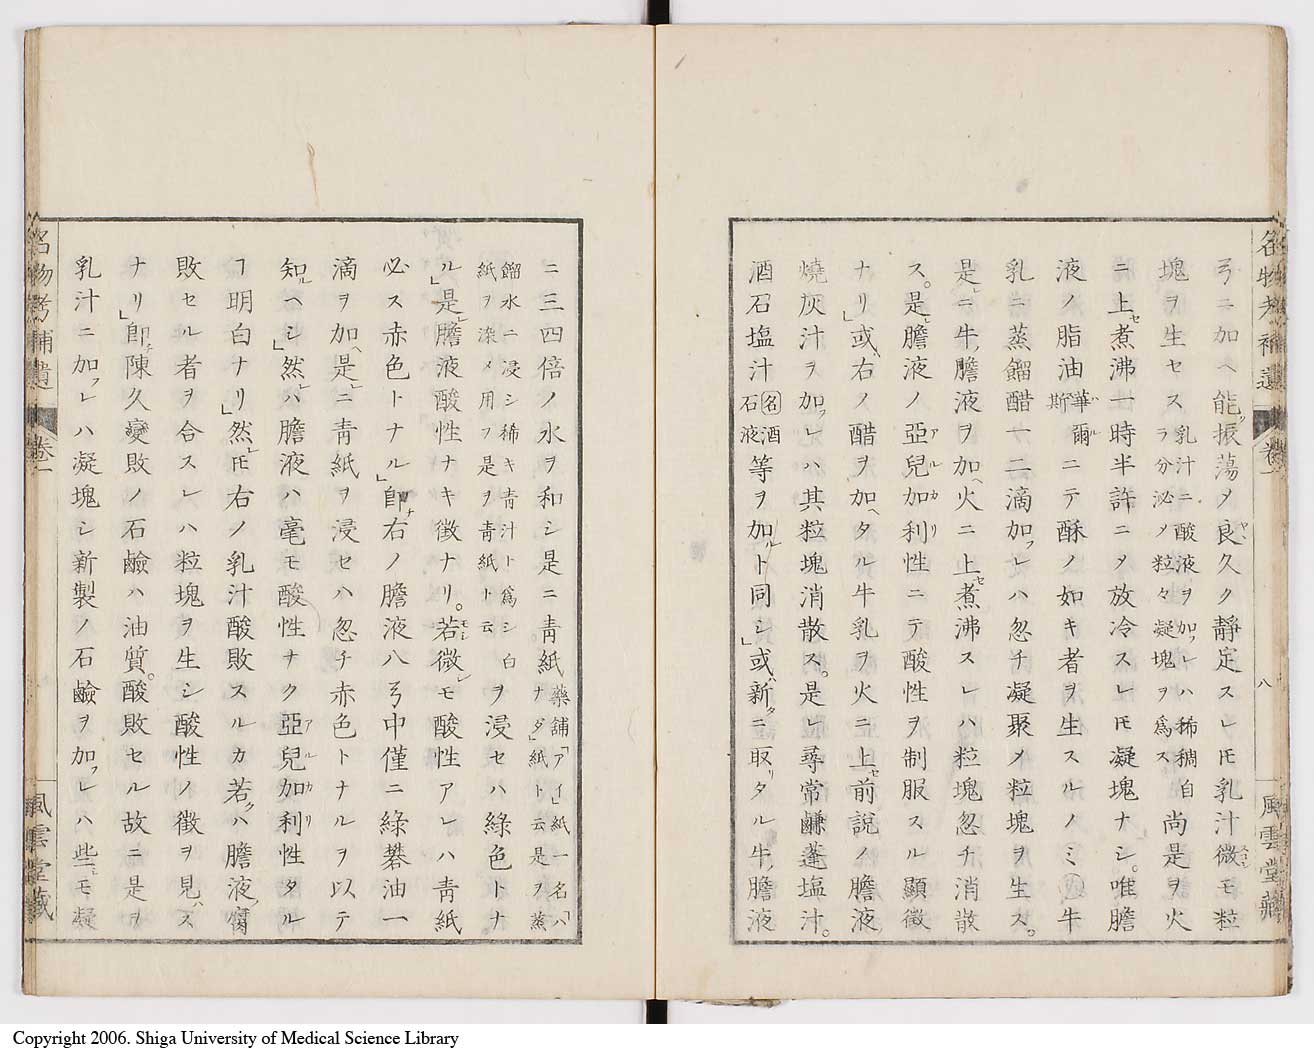 弓ニ加ヘ能ク振蕩メ良ヤヽ久ク靜定スレ𪜈乳汁微スコシモ粒
塊ヲ生セスラ分泌ノ粒々凝塊ヲ爲ス乳汁ニ酸液ヲ加フレハ稀稠自尚是ヲ火
ニ上セ煮沸一時半許ニメ放冷スレ𪜈凝塊ナシ。唯膽
液ノ脂油華ハ爾ル斯ニテ酥ノ如キ者ヲ生スルノミ○牛
乳ニ蒸餾醋一二滴加フレハ忽チ凝聚メ粒塊ヲ生ス。
是レニ牛膽液ヲ加ヘ火ニ上セ煮沸スレハ粒塊忽チ消散
ス。是レ膽液ノ亞ア兒ル加カ利リ性ニテ酸性ヲ制服スル顯徴
ナリ」或ハ右ノ醋ヲ加ヘタル牛乳ヲ火ニ上セ前說ノ膽液
燒灰汁ヲ加フレハ其粒塊消散ス。是レ尋常鹻蓬塩汁。
酒石塩汁名酒石液等ヲ加ルト同シ」或ハ新タニ取リタル牛膽液
名物考補遺 卷一 八 風雲堂藏
ニ三四倍ノ水ヲ和シ是ニ青紙藥舖「アイ」紙一名「ハナダ」紙ト云是ヲ蒸
餾水ニ浸シ稀キ青汁ト爲シ白紙ヲ染メ用フ是ヲ青紙ト云ヲ浸セハ綠色トナ
ル」是レ膽液酸性ナキ徴ナリ。若モシ微シモ酸性アレハ青紙
必ス赤色トナル」卽チ右ノ膽液八弓中僅ニ綠礬油一
滴ヲ加ヘ是レニ青紙ヲ浸セハ忽チ赤色トナルヲ以テ
知ルヘシ」然レハ膽液ハ毫モ酸性ナク亞ア兒ル加カ利リ性タル
ヿ明白ナリ」然レ𪜈右ノ乳汁酸敗スルカ若クハ膽液ノ腐
敗セル者ヲ合スレハ粒塊ヲ生シ酸性ノ徴ヲ見ハス
ナリ」卽チ陳久變敗ノ石鹼ハ油質。酸敗セル故ニ是ヲ
乳汁ニ加フレハ凝塊シ新製ノ石鹼ヲ加フレハ些ニモ凝
名物考補遺 卷一 風雲堂藏
Copyright 2006. Shiga University of Medical Science Library